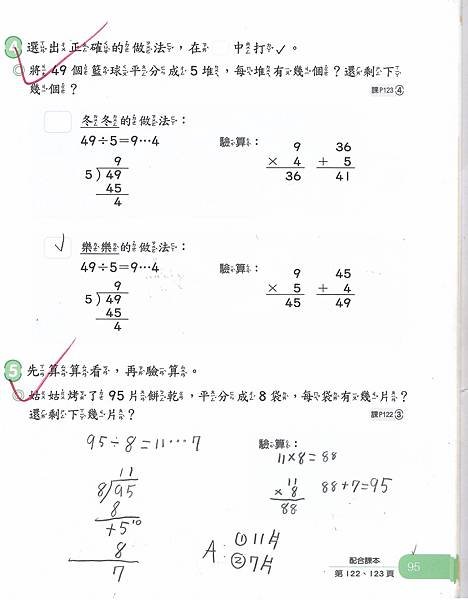 4 選出正確的做法，在 中打✓。
◎將 49 個籃球平分成 5 堆，每堆有幾個？還剩下
幾個？
課P123④
冬冬的做法：
49÷5=9…4
9
5)49
45
4
驗算：
9
× 4
36
36
+ 5
41
✓
樂樂的做法：
49÷5=9…4
9
5)49
45
4
驗算：
9
× 5
45
45
+ 4
49
5 先算算看，再驗算。
◎姑姑烤了 95 片餅乾，平分成 8 袋，每袋有幾片？
還剩下幾片？
課P122③
95÷8=11…7
11
8)95
8
+5
8
7
驗算：
11×8=88
11
× 8
88
88+7=95
A：①11片
②7片
配合課本
第 122、123 頁
95